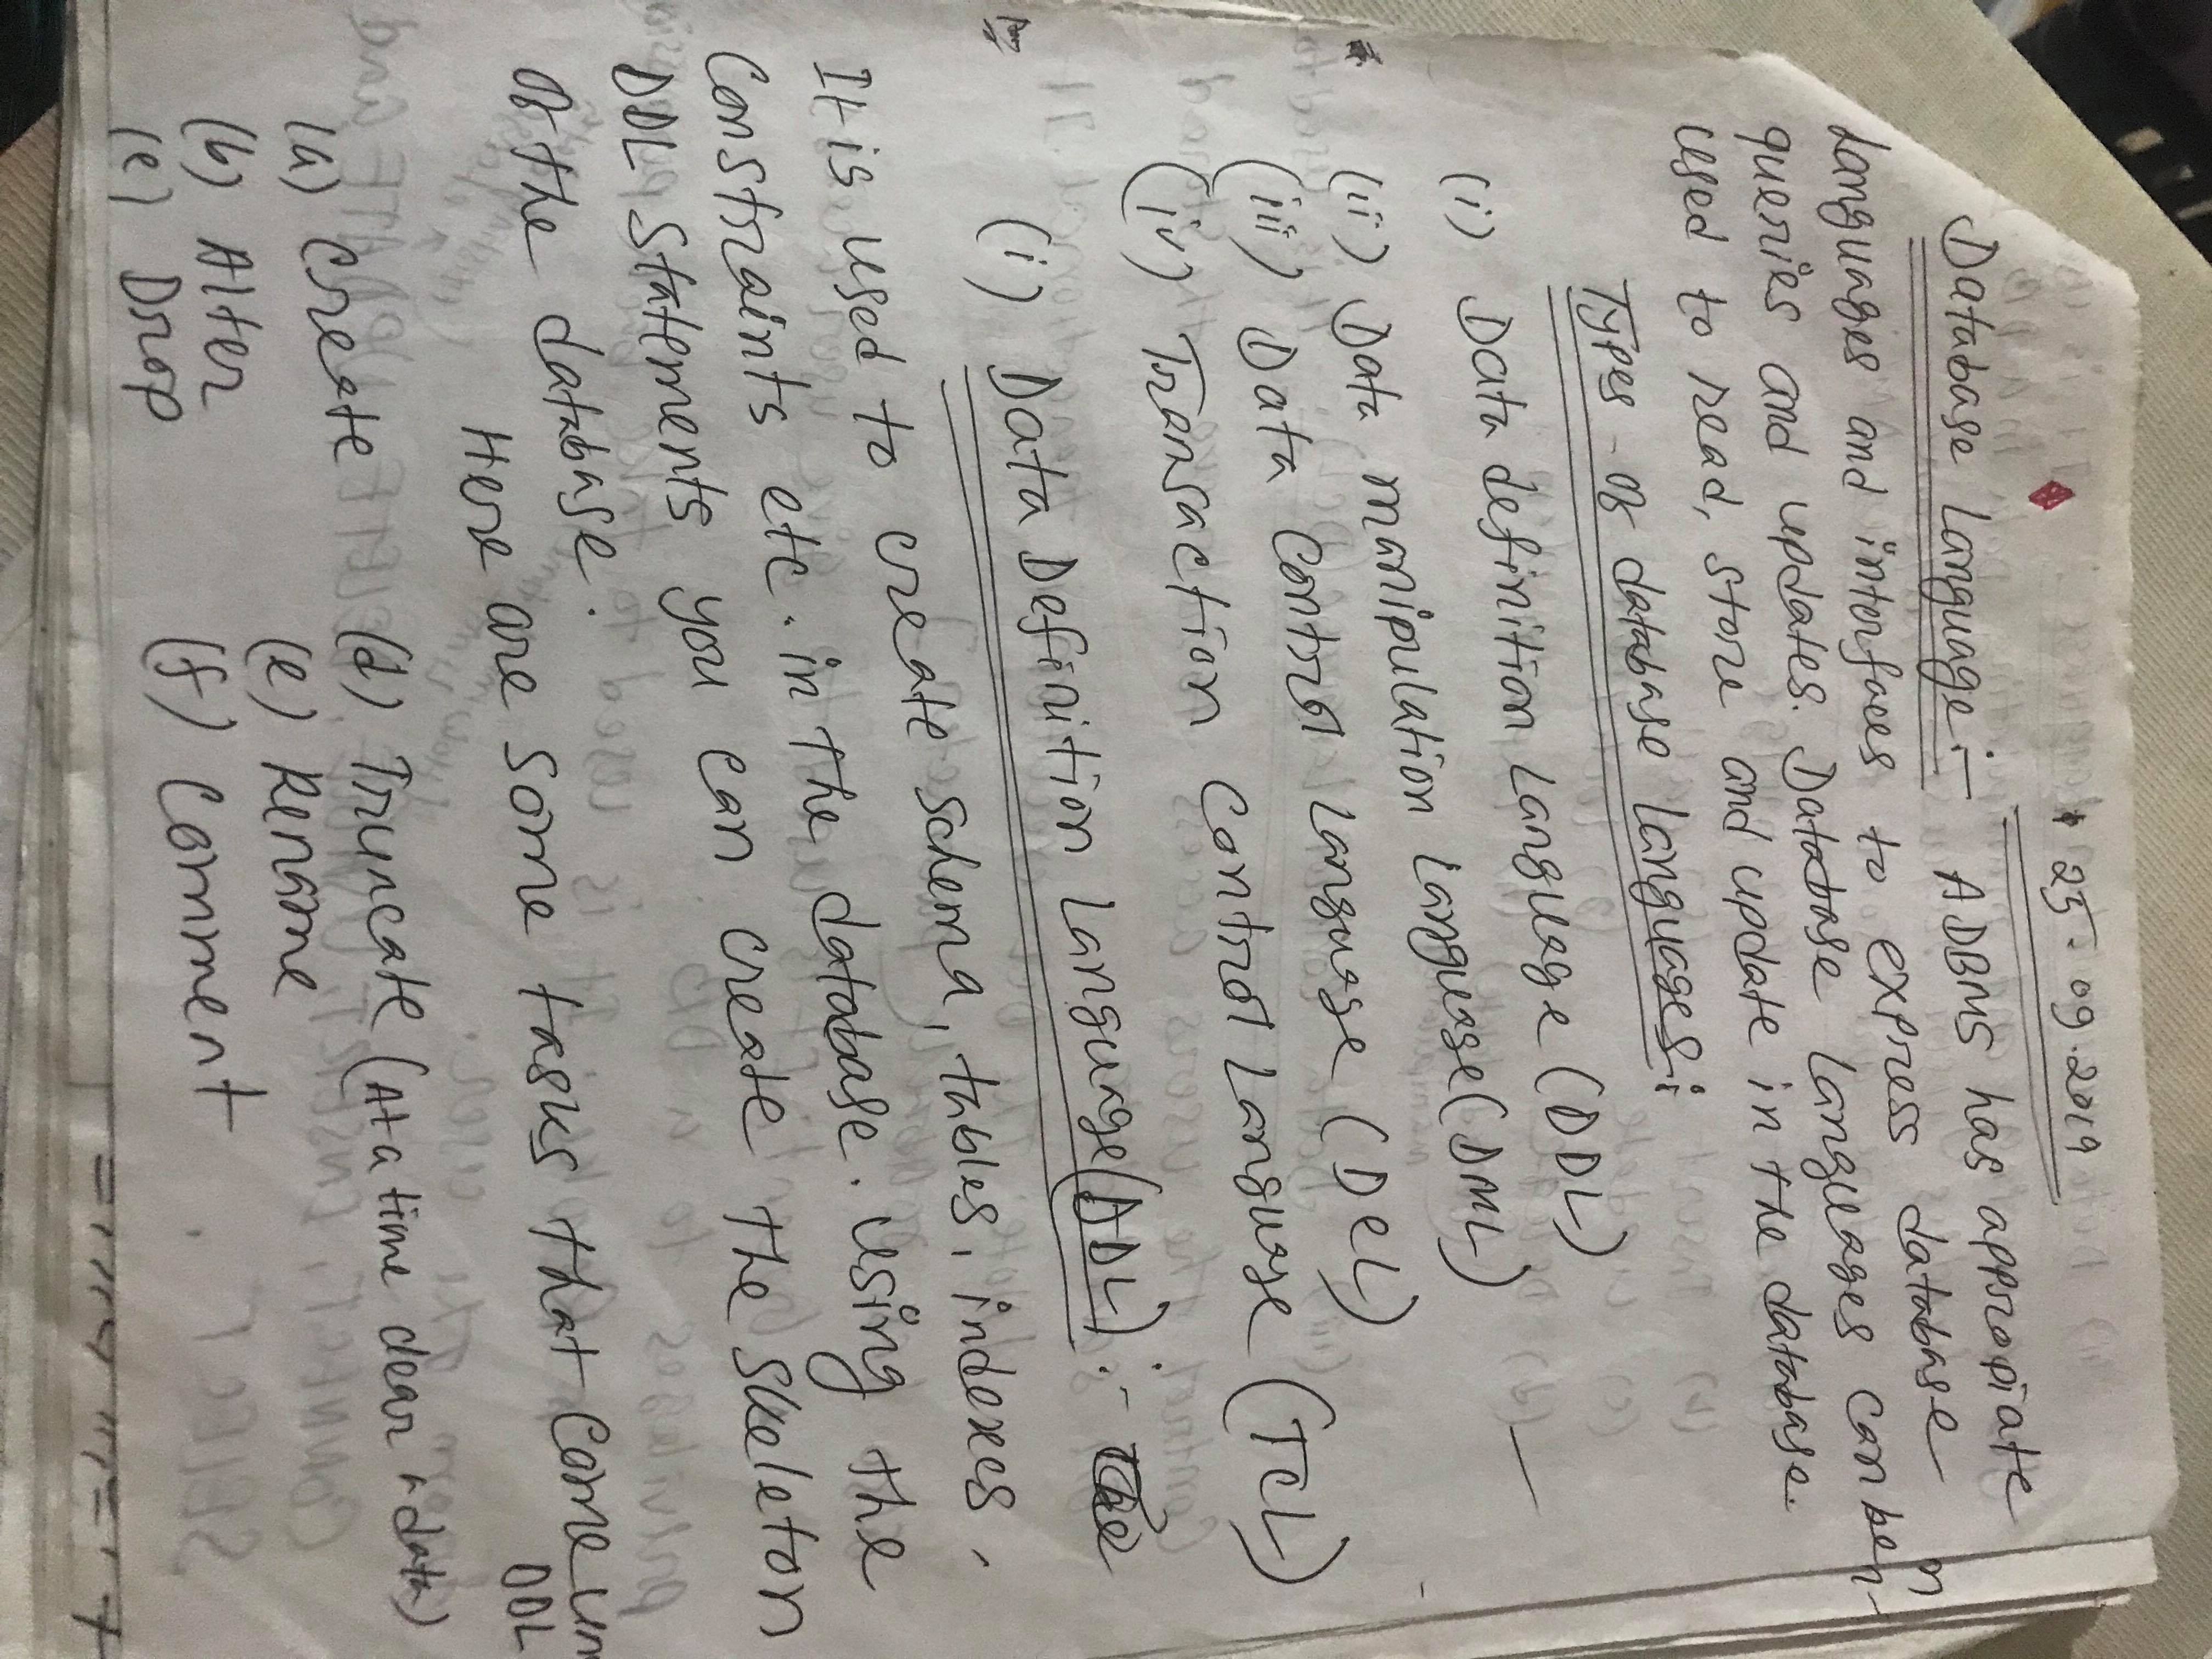 25.09.2019
Database Language :- A DBMS has appropiate
Languages and interfaces to express database
queries and updates. Database Languages can be
used to read, store and update in the database.
Types of database Languages :
(i) Data definition Language (DDL)
(ii) Data manipulation Language (DML)
(iii) Data Control Language (DCL)
(iv) Transaction Control Language (TCL)
Ans (i) Data Definition Language (DDL) :-
It is used to create schema, tables, indexes,
Constraints etc. in the database. Using the
DDL Statements you can create the skeleton
of the database.
Here are some tasks that come un
DDL
(a) Create (d) Truncate (At a time clear data)
(b) Alter (e) Rename
(c) Drop (f) Comment